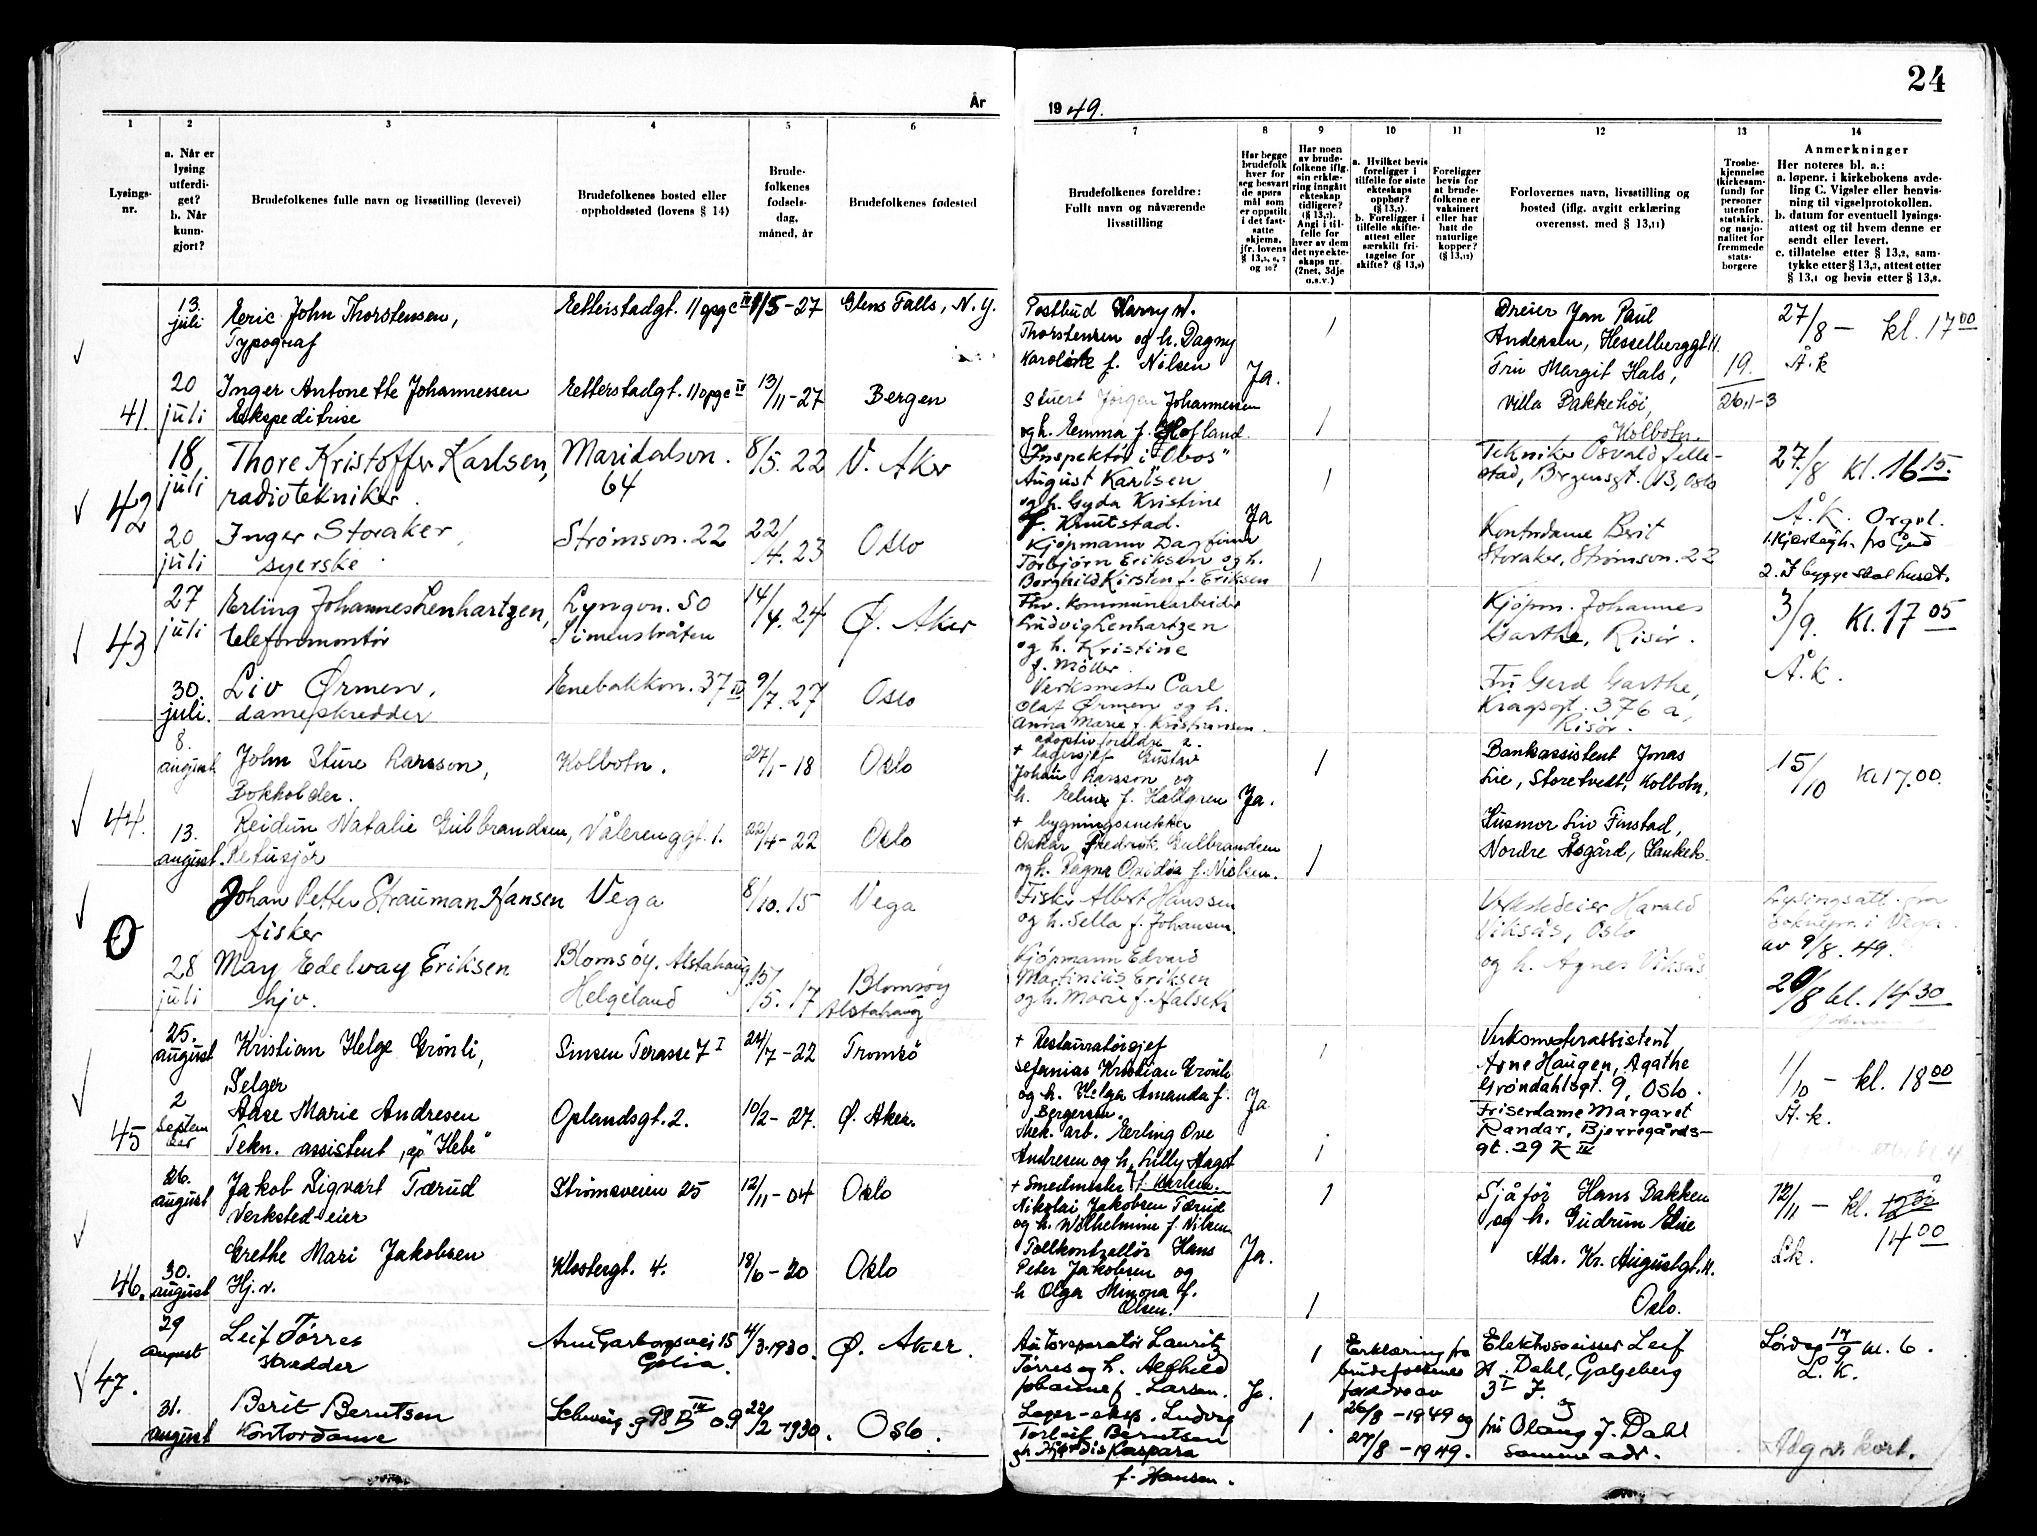 24
År
19 49.
1
2
3
4
5
6
7
8
9
10
11
12
13
14
Lysings-
nr.
a. Når er
lysing
utferdi-
get?
b. Når
kunn-
gjort?
Brudefolkenes fulle navn og livsstilling (levevei)
Brudefolkenes bosted eller
oppholdssted (lovens § 14)
Brude-
folkenes
fødsels-
dag,
måned, år
Brudefolkenes fødested
Brudefolkenes foreldre:
Fullt navn og nåværende
livsstilling
Har begge
brudefolk
hver for
seg besvart
de spørs
mål som
er oppstilt
i det fast-
satte
skjema,
jfr. lovens
§ 13,5, 6, 7
og 10?
Har noen
av brude-
folkene iflg.
sin erklæ-
ring inngått
ekteskap
tidligere?
(§ 13,2).
Angi i til-
felle for
hver av dem
det nye ekte-
skaps nr.
(2net, 3dje
o.s.v.)
a. Hvilket bevis
foreligger i
tilfelle for siste
ekteskaps
opphør?
(§ 13,7).
b. Foreligger i
tilfelle skifte-
attest eller
særskilt fri-
tagelse for
skifte? (§ 13,9)
Foreligger
bevis for
at brude-
folkene er
vaksinert
eller har
hatt de
naturlige
kopper?
(§ 13,12)
Forlovernes navn, livsstilling og
bosted (iflg. avgitt erklæring
overensst. med § 13,11)
Trosbe-
kjennelse
(kirkesam-
fund) for
personer
utenfor
statskirk.
og nasjo-
nalitet for
fremmede
stats-
borgere
Anmerkninger
Her noteres bl. a.:
a. løpenr. i kirkebokens avde-
ling C. Vigsler eller henvis-
ning til vigselprotokollen.
b. datum for eventuell lysings-
attest og til hvem denne er
sendt eller levert.
c. tillatelse etter § 13,2, sam-
tykke etter § 13,3, attest etter
§ 13,4 og bevis etter § 13,8.
41.
13.
juli
Eric John Thorstensen,
Typograf
Etterstadgt. 11 opg c IV
/5-27
Glens Falls, N.Y.
Postbud Harry W.
Thorstensen og h. Dagny
Karoline f. Nilsen
Ja.
1
Dreier Jan Paul
Andersen, Hesselberggt.
19.
26,1-3
27/8 - kl. 17 00
Å.k
20
juli
Inger Antonette Johannessen
Ekspeditrise
Etterstadgt. 11 opg c IV
13/11-27
Bergen
Stuert Jørgen Johannessen
og h. Emma f. Hofland.
1
Fru Margit Hals,
Villa Bakkehøi,
Kolbotn.
42
18,
juli
Thore Kristoffer Karlsen,
radiotekniker.
Maridalsvn.
64
8/5. 22
V. Aker
Inspektør i "Obos"
August Karlsen
og h. Gyda Kristine
f. Knutstad.
Ja
1
Tekniker Osvald Felle-
stad, Brgensgt. 13, Oslo
27./8 Kl. 16 15.
Å.K. Orgel.
20
juli
Inger Storaker,
syerske.
Strømsvn. 22
22/4. 23
Oslo
Kjøpmann Dagfinn
Torbjørn Eriksen og h.
Borghild Kirsten f. Eriksen
1
Kontordame Berit
Storaker, Strømsvn. 22
1. Kjærlegh. frå Gud
2. I bygge skal huset.
43
27
juli
Erling Johannes Lenhartzen,
telefonmontør
Lyngvn. 50
Simenstråten
14/4. 24
Ø. Aker
Fhv. kommunearbeider
Ludvig Lenhartzen
og h. Kristine
f. Möller.
Kjøpm. Johannes
Garthe, Risør.
3/9. Kl. 17 05
Å.k.
30.
juli.
Liv Ørmen,
dameskredder
Enebakkvn. 37 IV
9/7. 27
Oslo
Verksmester Carl
Olaf Ørmen og h.
Anna Marie f. Kristiansen.
Fru Gerd Garthe,
Kragsgt. 376 a,
Risør.
44.
8.
august
John Sture Larsson,
Bokholder.
Kolbotn.
27/1-18
Oslo
adoptivforeldre a.
+ lagersjef Gustav
Johan Larsson og
h. Elina f. Hallgren
Ja.
1
Bankassistent Jonas
Lie, Storetvedt, Kolbotn,
15/10 Kl 17.00.
13.
august.
Reidun Natalie Gulbrandsen,
Retusjør
Vålerenggt. 1.
22/4-22
Oslo
+ bygningssnekker
Oskar Fredrik Gulbrandsen
og h. Ragna Ovidia f. Nielsen.
1
Husmor Liv Finstad,
Nordre Åsgård,
0
Johan Petter Strauman Hansen
fisker
Vega
8/10. 15
Vega
Fisker Albert Hanssen
og h. Sella f. Johansen.
Verkstedeier Harald
Viksås, Oslo
og h. Agnes Viksås
Lysingsatt. fra
Soknepr. i Vega
av 9/8. 49.
28
juli
May Edelvay Eriksen
hjv.
Blomsöy, Alstahaug
Helgeland
15/5. 17
Blomsöy
Alstahaug
Kjøpmann Edvard
Martinius Eriksen
og h. Marie f. Halseth
20/8 kl. 14 30
45
25.
august
Kristian Helge Grönli,
Selger
Sinsen Terasse 7 I
24/7-22
Tromsö
+ Restauratørsjef
Sefanias Kristian Grönli
og h. Helga Amanda f.
Bergersen.
Ja
1
Verksmesterassistent
Arne Haugen, Agathe
Grøndahlsgt. 9, Oslo.
1/10 - kl. 18 00
Å.k.
2
septem
ber
Aase Marie Andresen
Tekn. assistent på "Hebe"
Oplandsgt. 2.
10/2-27.
Ø. Aker.
Mek. arb. Erling Ove
Andresen og h. Lilly Aagot
f. Karlsen.
1
Friserdame Margaret
Randar, Bjerregårds-
gt. 29 K IV
46.
26.
august
Jakob Sigvart Tærud
Verkstedeier
Strömsveien 25
12/11-04
Oslo
+ Smedmester
Nikolai Jakobsen Tærud
og h. Wilhelmine f. Nilsen
Ja.
1
Sjåför Hans Bakken
og h. Gudrun Elise
Adr. Kr. Augustgt.
Oslo.
12/11 - kl.
14 00
L.k.
30.
august
Grethe Mari Jakobsen
Hj.v.
Klostergt. 4.
18/6-20
Oslo
Tollkontrollör Hans
Peter Jakobsen og
h Olga Minora f.
Olsen.
1
47.
29
august
Leif Tørres
skredder
Arne Garborgsvei 15
4/3-1930.
Ø. Aker.
Autoreparatör Lauritz
Tørres og h. Alfhild
Johanne f. Larsen.
Ja.
1
Erklæring fra
brudefolkenes
foreldre av
26/8-1949 og
27/8-1949.
Elektrosveiser Leif
H. Dahl, Galgeberg
3 I 7.
og
fru Olaug J. Dahl
samme adr.
Lørdag 17/9 kl. 6.
L.K.
31.
august
Berit Berntsen
Kontordame
Schweig.g 98 B IV o.g
22/2-1930.
Oslo.
Lager-eksp. Ludvig
Torleif Berntsen
og h. Hjørdis Kaspara
f. Hansen.
1.